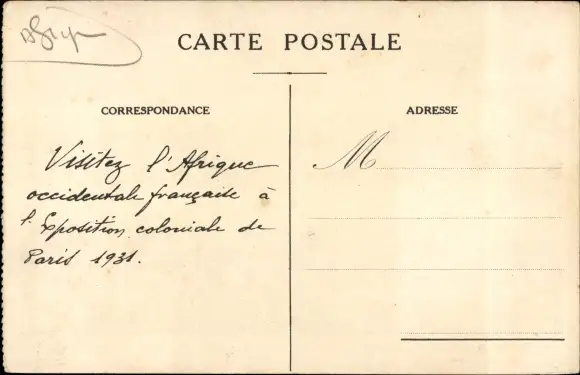 CARTE POSTALE
CORRESPONDANCE
ADRESSE
Visitez l'Afrique
occidentale française à
l'Exposition coloniale de
Paris 1931.
M